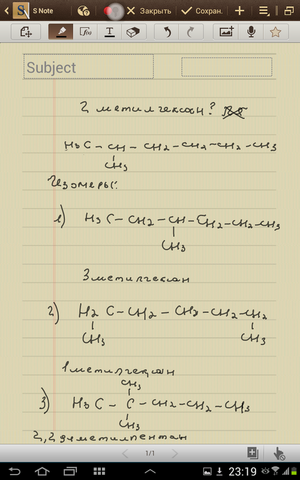 S Note
Закрыть
Сохран.
Subject
2 метилгексан?
H3C – CH – CH2 – CH2 – CH2 – CH3
CH3
Изомеры:
1) H3C – CH2 – CH – CH2 – CH2 – CH3
CH3
3 метилгексан
2) H2C – CH2 – CH2 – CH2 – CH2
CH3 CH3
1 метилгексан
CH3
3) H3C – C – CH2 – CH2 – CH3
CH3
2,2 диметилпентан
1/1
23:19